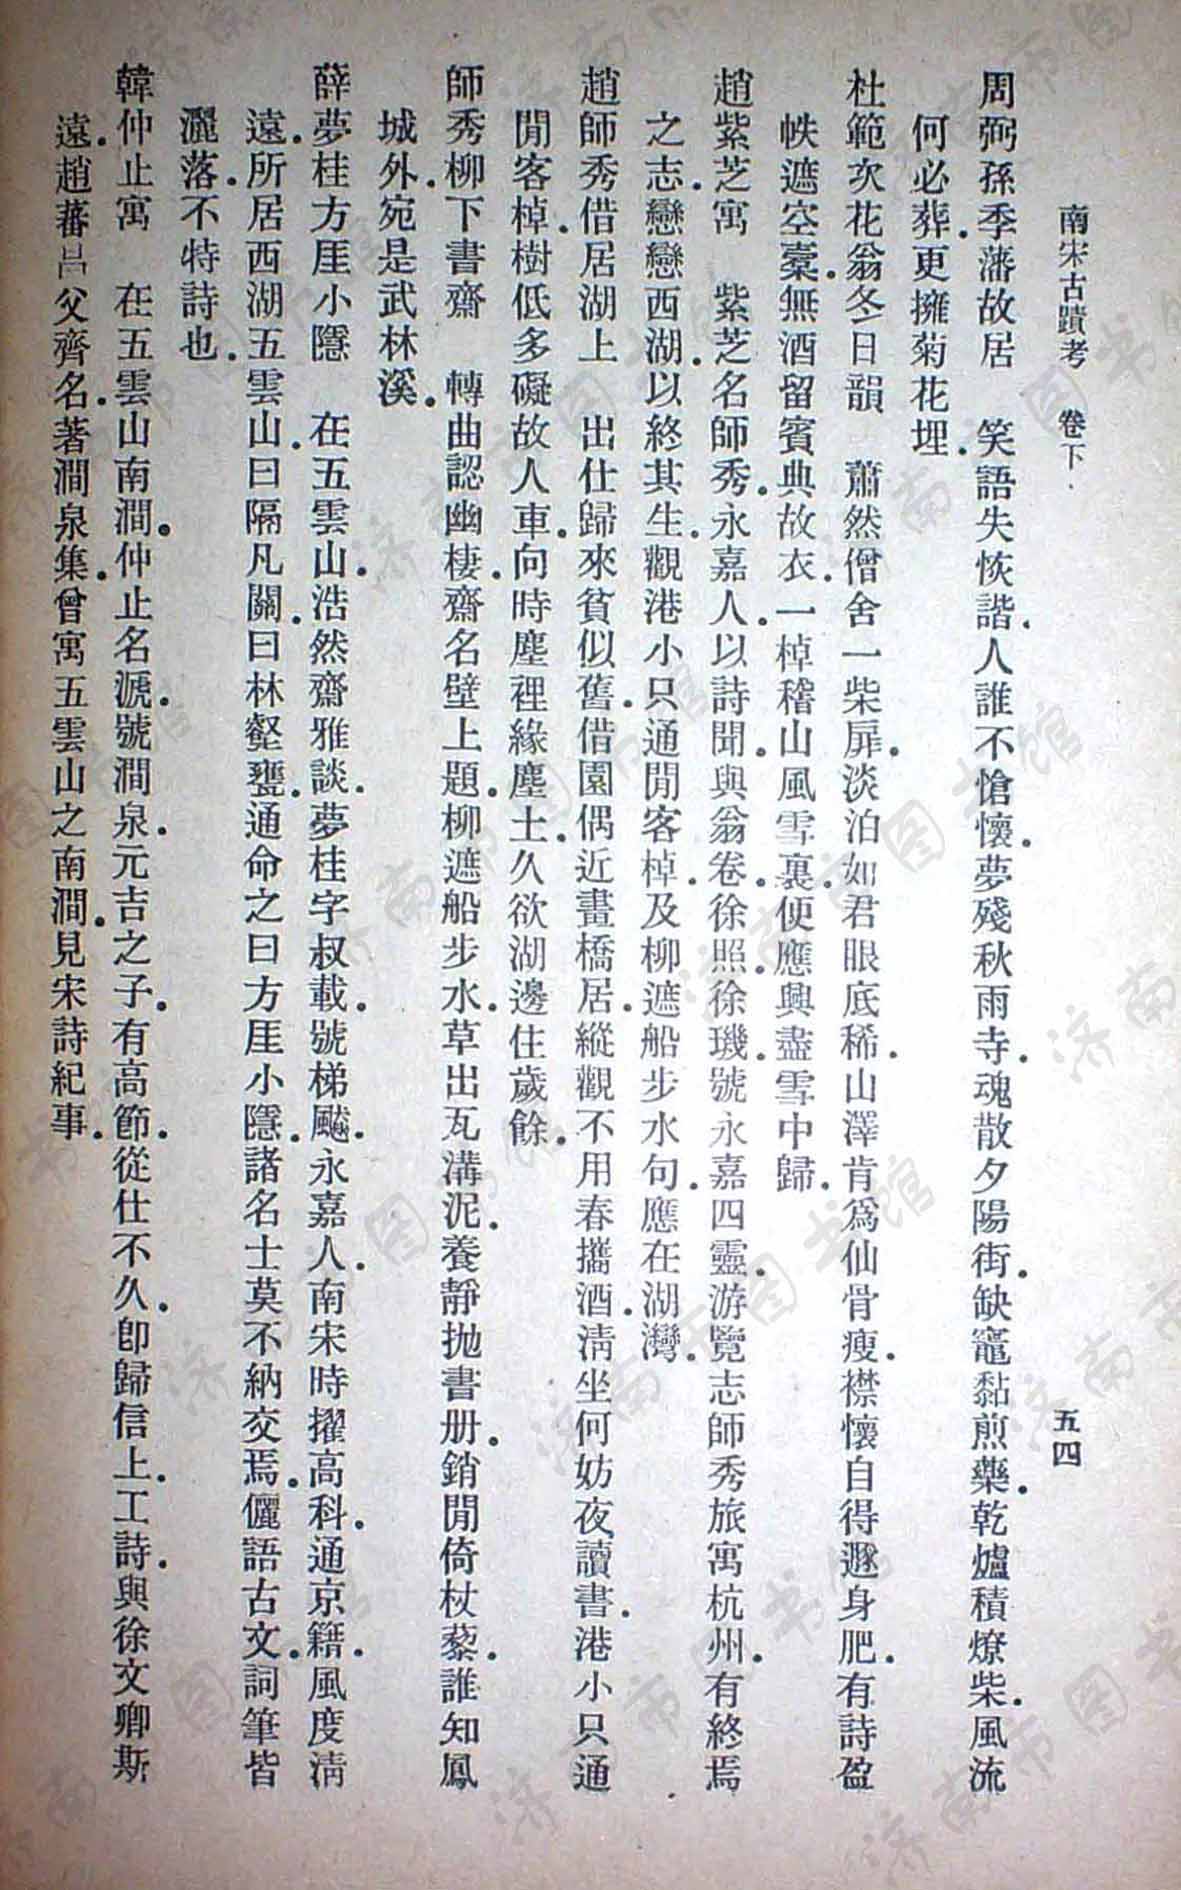 南宋古蹟考 卷下 五四
周弼孫季藩故居 笑語失恢諧.人誰不愴懷.夢殘秋雨寺.魂散夕陽街.缺竈黏煎藥.乾爐積燎柴.風流
何必葬.更擁菊花埋.
杜範次花翁冬日韻 蕭然僧舍一柴扉.淡泊如君眼底稀.山澤肯爲仙骨瘦.襟懷自得遯身肥.有詩盈
帙遮空橐.無酒留賓典故衣.一棹稽山風雪裏.便應興盡雪中歸.
趙紫芝寓 紫芝名師秀.永嘉人.以詩聞.與翁卷.徐照.徐璣.號永嘉四靈.游覽志師秀旅寓杭州.有終焉
之志.戀戀西湖.以終其生.觀港小只通閒客棹.及柳遮船步水句.應在湖灣.
趙師秀借居湖上 出仕歸來貧似舊.借園偶近畫橋居.縱觀不用春攜酒.淸坐何妨夜讀書.港小只通
閒客棹.樹低多礙故人車.向時塵裡緣塵土.久欲湖邊住歲餘.
師秀柳下書齋 轉曲認幽棲.齋名壁上題.柳遮船步水.草出瓦溝泥.養靜拋書册.銷閒倚杖藜.誰知鳳
城外.宛是武林溪.
薛夢桂方厓小隱 在五雲山.浩然齋雅談.夢桂字叔載.號梯飈.永嘉人.南宋時擢高科.通京籍.風度淸
遠.所居西湖五雲山.曰隔凡關.曰林壑甕.通命之曰方厓小隱.諸名士莫不納交焉.儷語古文.詞筆皆
灑落.不特詩也.
韓仲止寓 在五雲山南澗.仲止名淲.號澗泉.元吉之子.有高節.從仕不久.卽歸信上.工詩.與徐文卿斯
遠.趙蕃昌父齊名.著澗泉集.曾寓五雲山之南澗.見宋詩紀事.